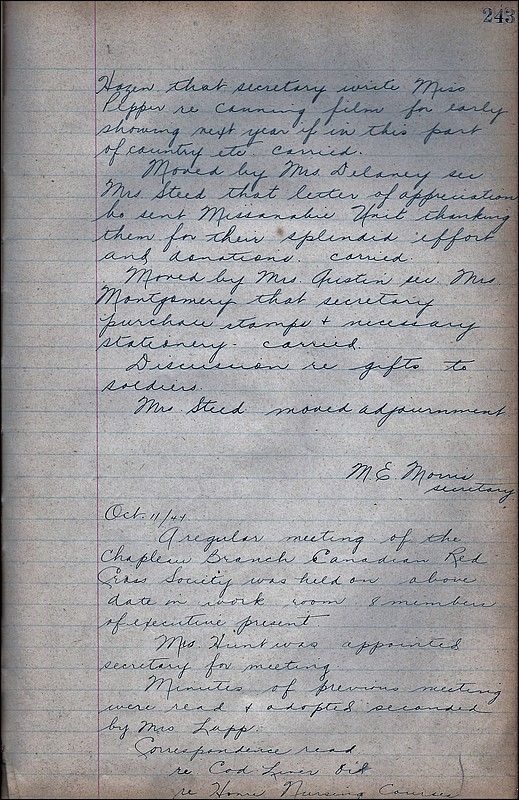 243
Hazen that secretary write Miss
Pepper re canning film for early
showing next year if in this part
of country etc. carried.
Moved by Mrs. Delaney sec
Mrs. Steed that letter of appreciation
be sent Missanabie Unit thanking
them for their splendid effort
and donations. carried.
Moved by Mrs. Austin sec. Mrs.
Montgomery that secretary
purchase stamps + necessary
stationery - carried.
Discussion re gifts to
soldiers.
Mrs. Steed moved adjournment
M.E. Morris
secretary
Oct. 11/44
A regular meeting of the
Chapleau Branch Canadian Red
Cross Society was held on above
date in work room 8 members
of executive present
Mrs. Hunt was appointed
secretary for meeting
Minutes of previous meeting
were read + adopted seconded
by Mrs Lapp.
Correspondence read
re Cod Liver Oil
re Home Nursing Courses